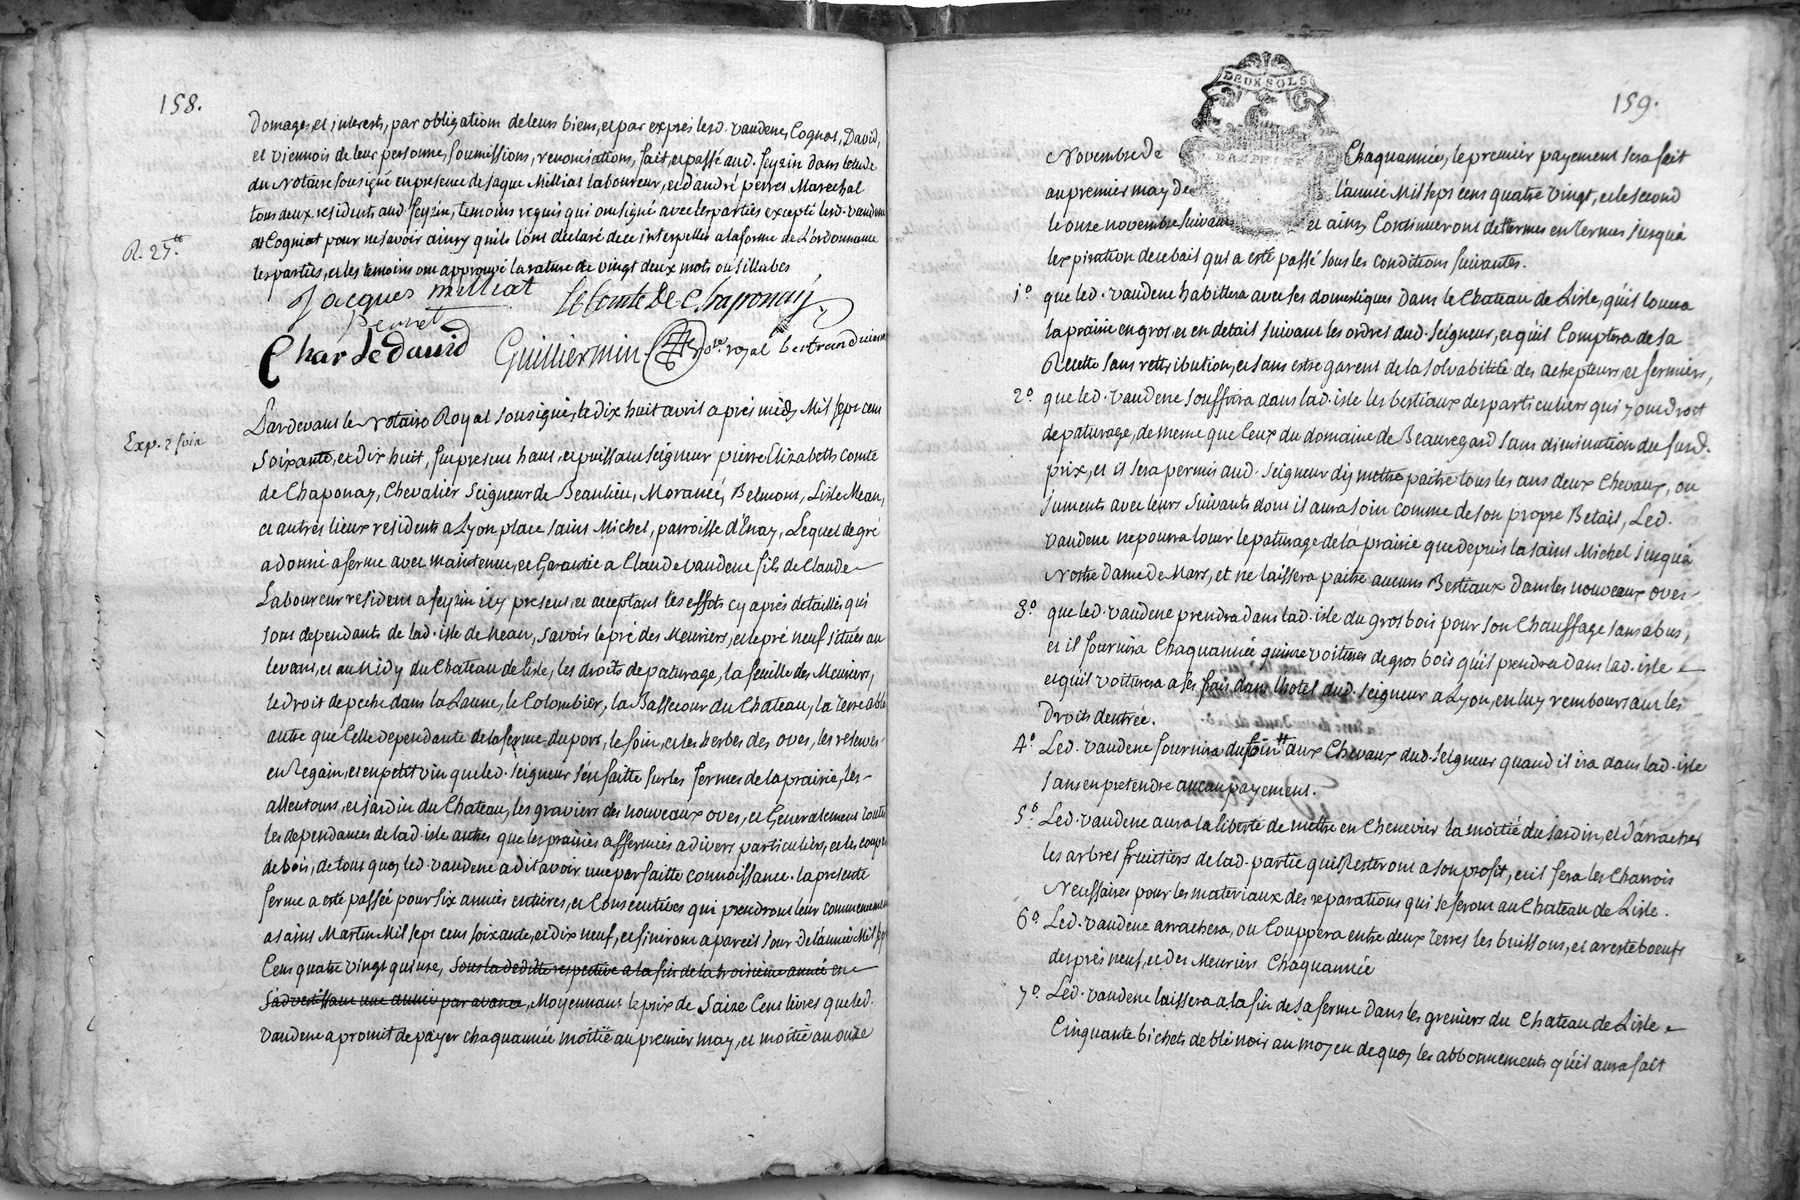 158.
Domages, et interests, par obligation de leurs biens, et par exprés lesd. vaudene, Cogniat, David,
et viennois de leur personne, soumissions, renonciations, fait, et passé aud. feyzin dans letude
du Notaire sousigné en presence de Jaque Milliat laboureur, et d'andré perret Marechal
tous deux residents aud. feyzin, temoins requis qui ont signé avec les parties excepté lesd. vaudene
et Cogniat pour ne savoir ainsy quils l'ont declaré de ce interpellés a la forme de L'ordonnance
R. 25.ts
les parties, et les temoins ont approuvé la rature de vingt deux mots ou sillabes
Jacques milliat Le Comte De Chaponay
perret
Charle david Guilliermin no.re royal bertrand viennois
Pardevant le Notaire Royal sousigné, le dix huit avril aprés midy Mil sept cent
Exp. 2 fois
soixante, et dix huit, fut present haut, et puissant seigneur pierre Elizabeth Comte
de Chaponay, Chevalier Seigneur de Beaulieu, Morancé, Belmont, Lisle Mean,
et autres lieux resident a Lyon place saint Michel, parroisse d'Enay, Lequel de gré
a donné a ferme avec maintenue, et Garantie a Claude vaudene fils de Claude
Laboureur resident a feyzin icy present, et acceptant les effets cy aprés detaillés qui
sont dependants de lad. isle de mean, savoir le pré des Meuriers, et le pré neuf situés au
levant, et au Midy du Chateau de Lisle, les droits de paturage, la feuille des Meuriers,
le droit de peche dans la Laune, le Colombier, la Bassecour du Chateau, la terre able
autre que Celle dependante de la ferme du port, le foin, et les herbes des oves, les reserves
en Regain, et en petit vin que led. seigneur s'en faitte sur les fermes de la prairie, les
allentours, et jardin du Chateau, les graviers des nouveaux oves, et Generalement toutes
les dependances de lad. isle autres que les prairies affermées a divers particuliers, et les coupes
de bois, de tout quoy led. vaudene a dit avoir une parfaitte connoissance. la presente
ferme a esté passée pour six années entieres, et Consecutives qui prendront leur commencement
a saint Martin Mil sept cent soixante, et dix neuf, et finiront a pareil jour de l'année Mil sept
Cent quatre vingt quinze, sous la dedite respective a la fin de la troisieme année en
s'advertissant une année par avance, Moyennant le prix de Saize Cent livres que led.
vaudene a promit de payer chaquannée moitié au premier may, et moitié au onze
159.
DEUX SOLS
DAUPHINÉ
Novembre de Chaquannée, le premier payement sera fait
au premier may de l'année Mil sept cent quatre vingt, et le second
le onze novembre suivant et ainsy Continueront de termes en termes jusqu'a
lexpiration de ce bail qui a esté passé sous les conditions suivantes.
1.o que led. vaudene habittera avec ses domestiques dans le Chateau de Lisle, qu'il louera
la prairie en gros, et en detail suivant les ordres dud. seigneur, et qu'il Comptera de sa
Recette sans rettribution, et sans estre garent de la solvabilité des achepteurs, et fermiers,
2.o que led. vaudene souffrira dans lad. isle les bestiaux des particuliers qui y ont droit
de paturage, de meme que Ceux du domaine de Beauregard sans diminution du susd.
prix, et il sera permis aud. seigneur d'y mettre paitre tous les ans deux Chevaux, ou
juments avec leurs suivants dont il aura soin comme de son propre Betail, Led.
vaudene ne pourra louer le paturage de la prairie que depuis la saint Michel jusqu'a
Nostre dame de Mars, et ne laissera paitre aucuns Bestiaux dans les nouveaux oves
3.o que led. vaudene prendra dans lad. isle du gros bois pour son Chauffage sans abus,
et il fournira Chaquannée quinze voitures de gros bois qu'il prendra dans lad. isle
et qu'il voiturera a ses frais dans l'hotel dud. seigneur a Lyon, en luy remboursant les
droits dentrée.
4.o Led. vaudene fournira du foin aux Chevaux dud. seigneur quand il ira dans lad. isle
sans en pretendre aucun payement.
5.o Led. vaudene aura la liberté de mettre en Chenevier la moitié du jardin, et d'arracher
les arbres fruitiers de lad. partie qui Resteront a son profit, et il fera les Charrois
Necessaires pour les materiaux des reparations qui se feront au Chateau de Lisle.
6.o Led. vaudene arrachera, ou Couppera entre deux terres les buissons, et areste boeufs
des prés neuf, et des Meuriers Chaquannée
7.o Led. vaudene laissera a la fin de sa ferme dans les greniers du Chateau de Lisle
Cinquante bichets de blé noir au moyen de quoy les abbonnements qu'il aura fait